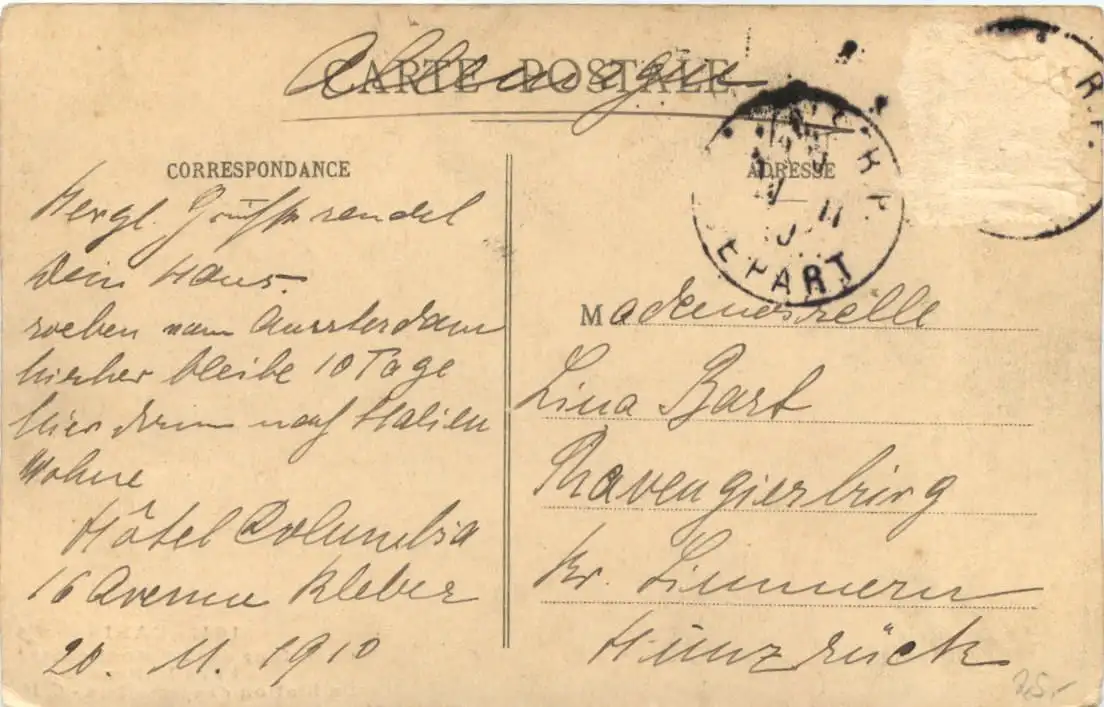 Allemagne
CARTE POSTALE
CORRESPONDANCE
ADRESSE
DEPART
R.P.
Herzl. Grüsse sendet
Dein Hans.
soeben von Amsterdam
hierher bleibe 10 Tage
hier dann nach Italien
Wohne
Hôtel Columbia
16 Avenue Kleber
20. 11. 1910
Mademoiselle
Lina Bast
Ravengiersburg
Kr. Simmern
Hunzrück
25.-